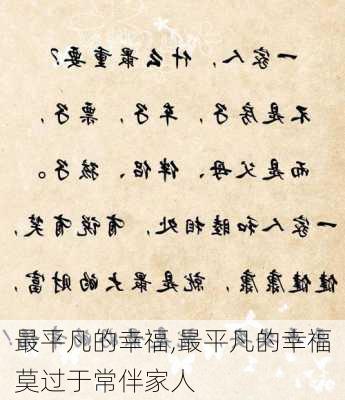 一家人，什么最重要？
不是房子，车子，票子，
而是父母、伴侣、孩子。
一家人和睦相处，有说有笑，
健健康康，就是最大的财富，
最平凡的幸福,最平凡的幸福
莫过于常伴家人